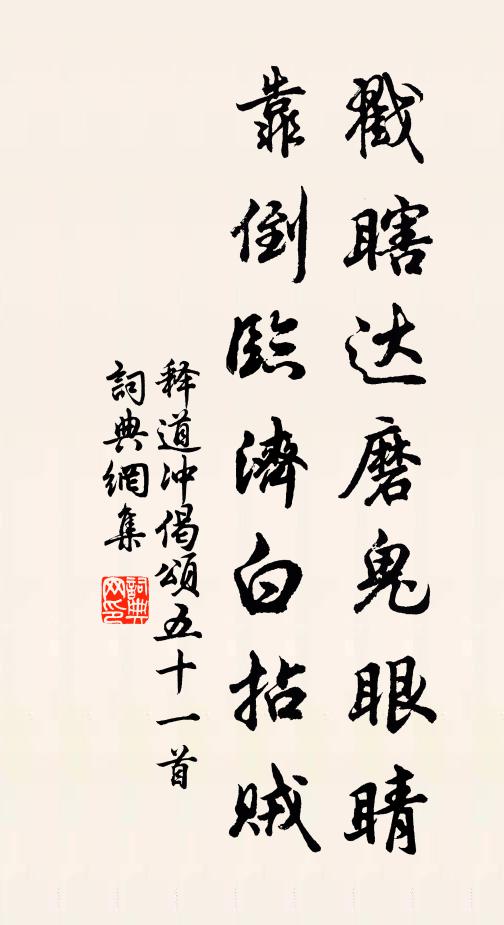 戳瞎达磨鬼眼睛
靠倒臨濟白拈賊
释道冲偈頌五十一首
詞典網集
詞典网印